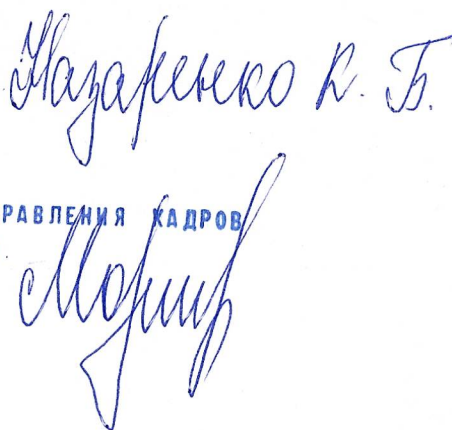 Назаренко К. Б.
РАВЛЕНИЯ КАДРОВ